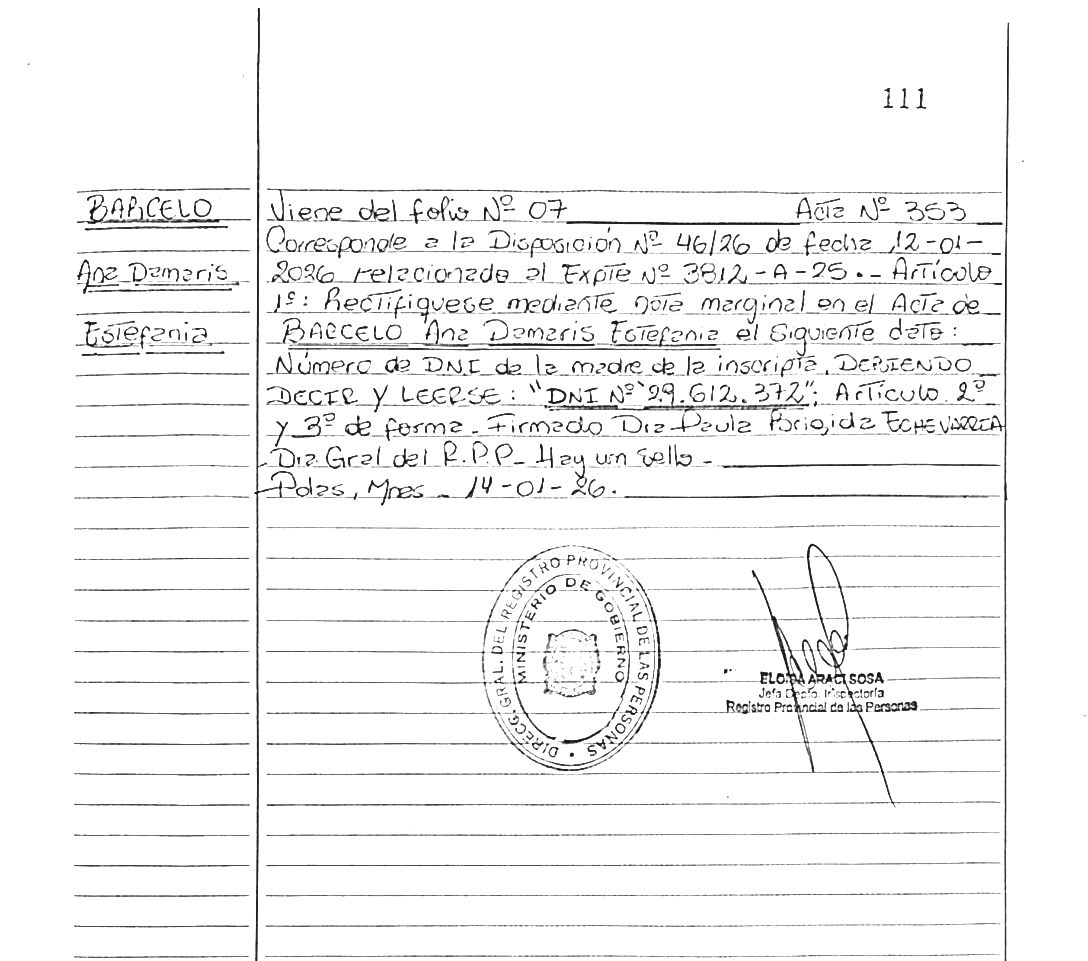 111
BARCELO
Ana Damaris
Estefania
Viene del folio Nº 07 Acta Nº 353
Corresponde a la Disposición Nº 46/26 de fecha 12-01-
2026 relacionado al Expte Nº 3812-A-25.- Artículo
1º: Rectifiquese mediante nota marginal en el Acta de
BARCELO Ana Damaris Estefania el siguiente dato:
Número de DNI de la madre de la inscripta, DEBIENDO
DECIR Y LEERSE: "DNI Nº 29.612.372"; Artículo 2º
y 3º de forma - Firmado Dra Paula Brigida ECHEVARRIA
Dra Gral del R.P.P - Hay un sello -
Pdas, Mnes - 14-01-26.
DIRECC. GRAL. DEL REGISTRO PROVINCIAL DE LAS PERSONAS
MINISTERIO DE GOBIERNO
ELOISA ARACI SOSA
Jefa Depto. Inspectoría
Registro Provincial de las Personas